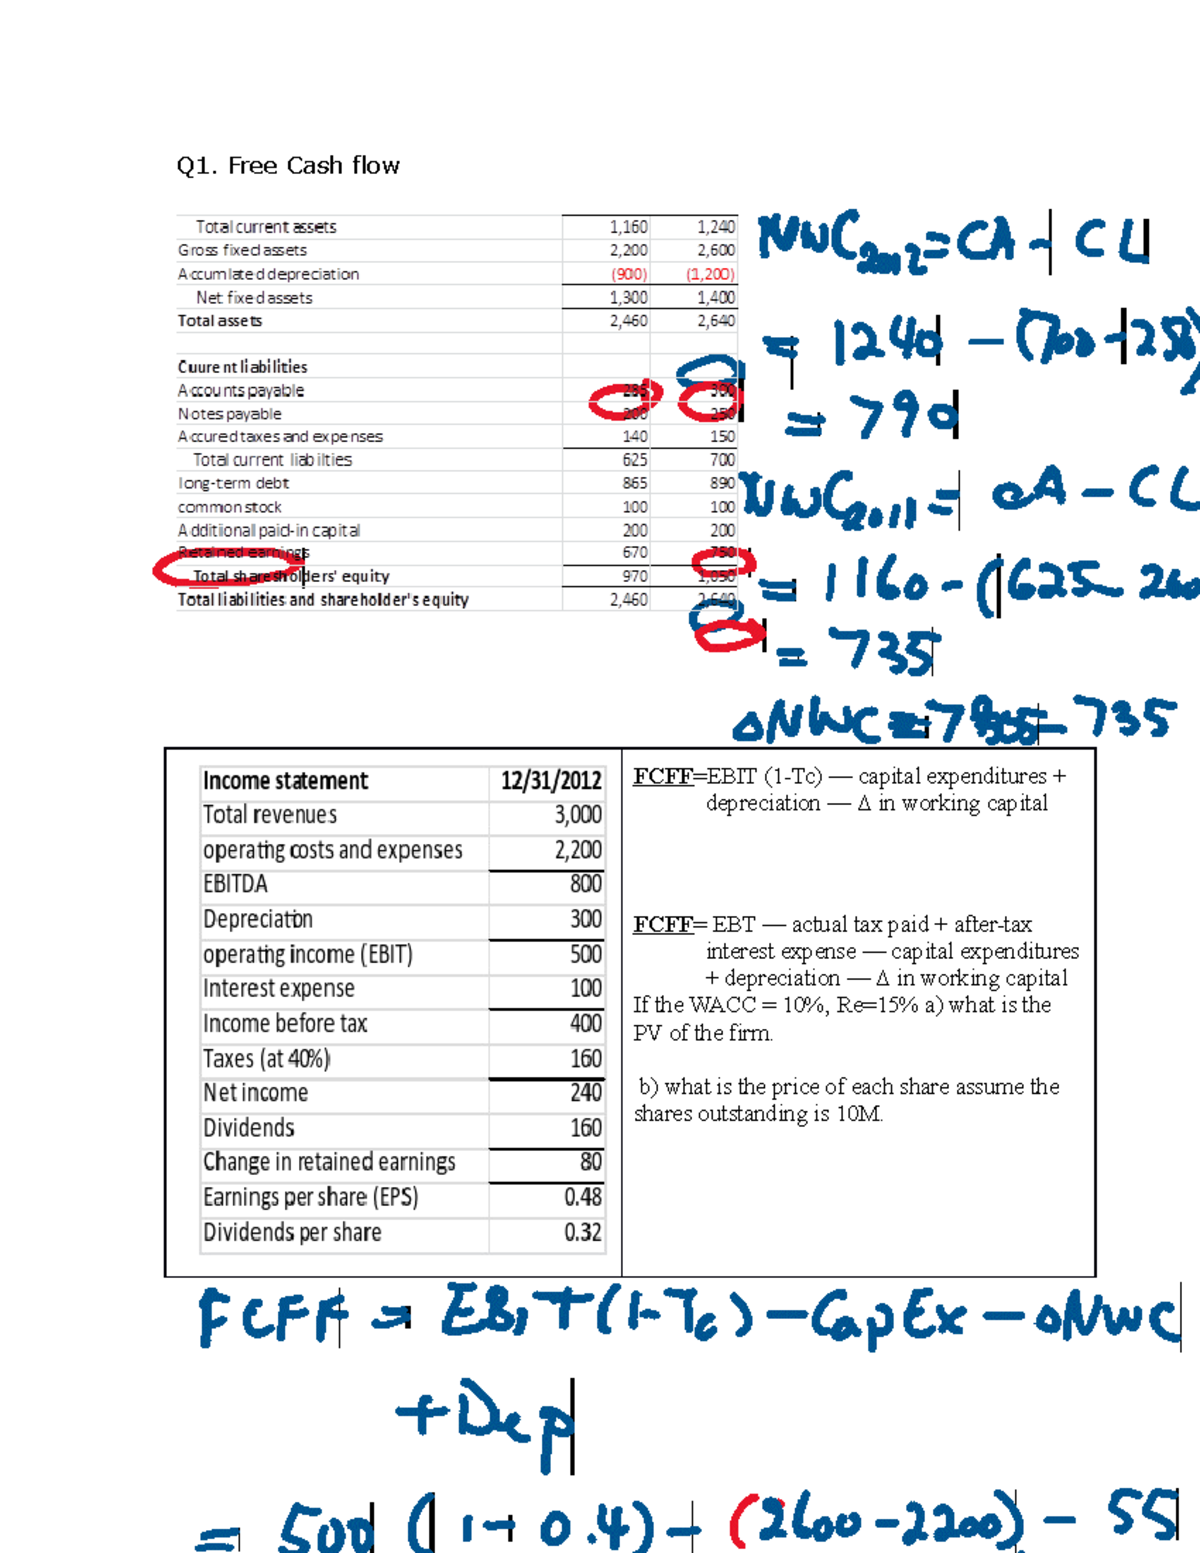 Q1. Free Cash flow
Total current assets 1,160 1,240
Gross fixed assets 2,200 2,600
Accumlated depreciation (900) (1,200)
Net fixed assets 1,300 1,400
Total assets 2,460 2,640
Cuurent liabilities
Accounts payable 285 300
Notes payable 200 250
Accured taxes and expenses 140 150
Total current liabilties 625 700
long-term debt 865 890
common stock 100 100
Additional paid-in capital 200 200
Retained earnings 670 750
Total sharesholders' equity 970 1,050
Total liabilities and shareholder's equity 2,460 2,640
NWC2012 = CA - CL
= 1240 - (700 - 250)
= 790
NWC2011 = CA - CL
= 1160 - (625 - 200
= 735
ΔNWC = 735
Income statement 12/31/2012
Total revenues 3,000
operating costs and expenses 2,200
EBITDA 800
Depreciation 300
operating income (EBIT) 500
Interest expense 100
Income before tax 400
Taxes (at 40%) 160
Net income 240
Dividends 160
Change in retained earnings 80
Earnings per share (EPS) 0.48
Dividends per share 0.32
FCFF=EBIT (1-Tc) — capital expenditures +
depreciation — Δ in working capital
FCFF= EBT — actual tax paid + after-tax
interest expense — capital expenditures
+ depreciation — Δ in working capital
If the WACC = 10%, Re=15% a) what is the
PV of the firm.
b) what is the price of each share assume the
shares outstanding is 10M.
FCFF = EBIT(1-Tc) - CapEx - ΔNWC
+ Dep
= 500 (1 - 0.4) - (2600 - 2200) - 55